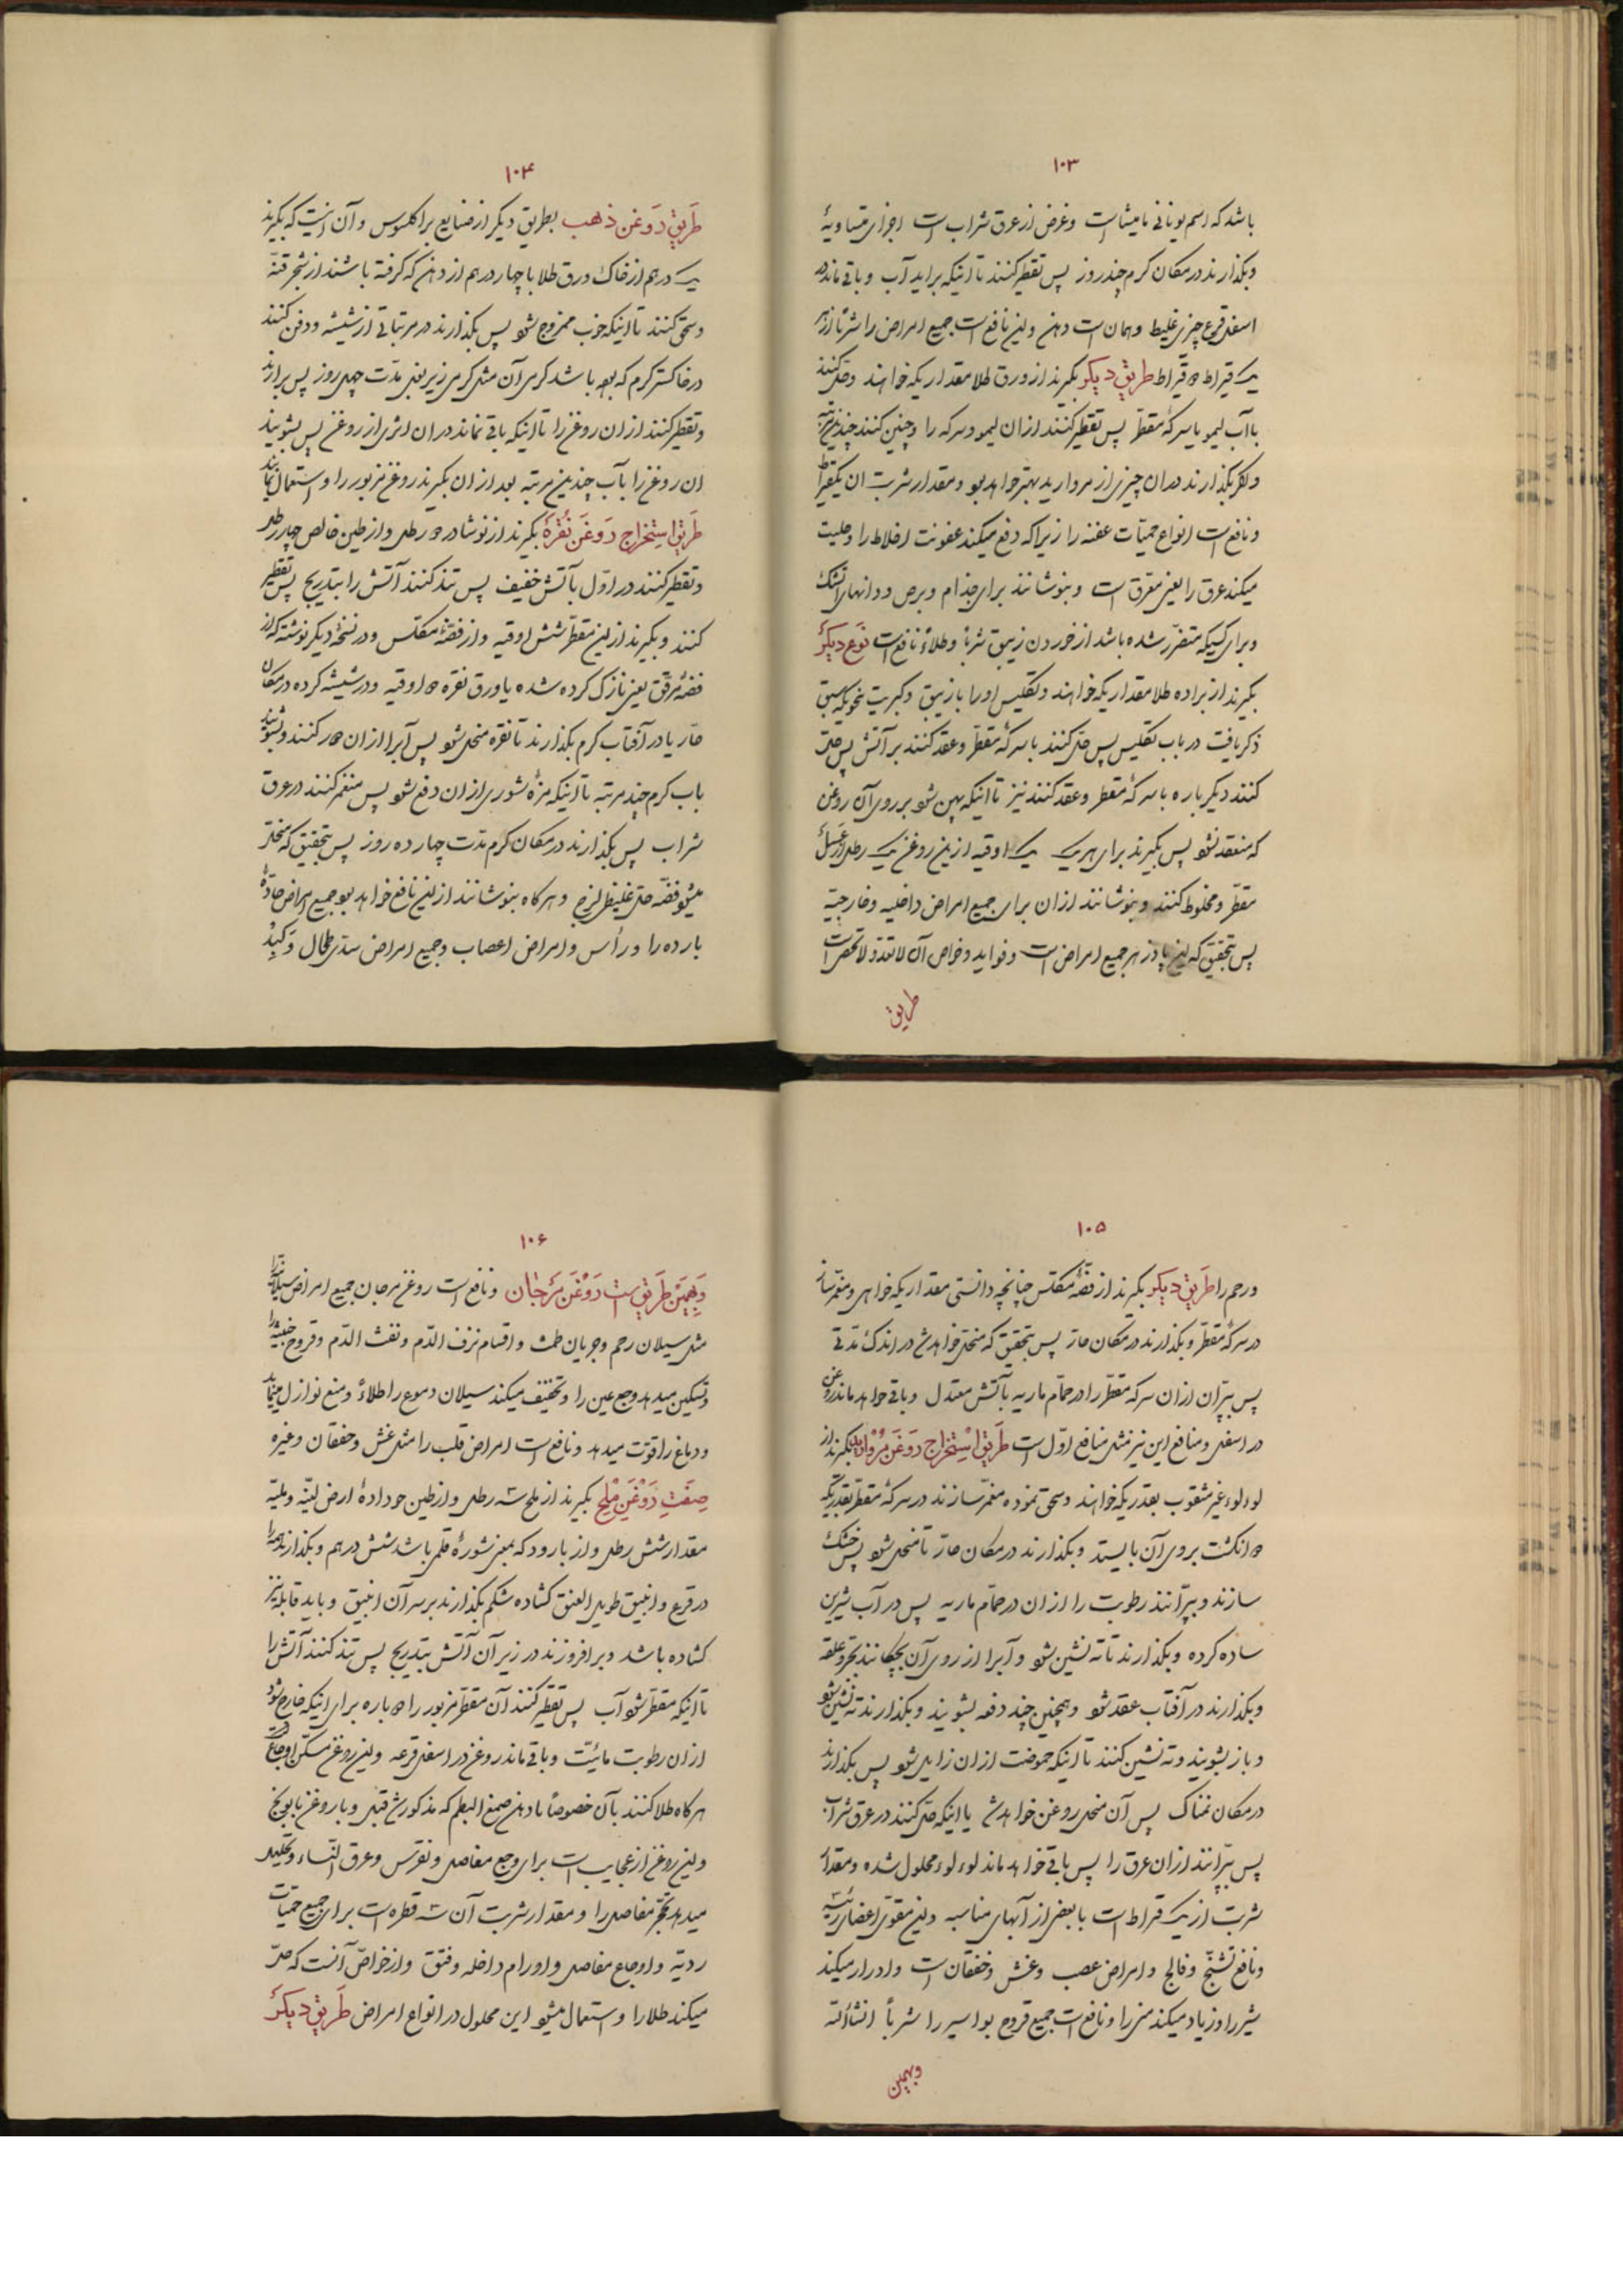 ۱۰۳
باشد که اسم یونانی نامیثا است وغرض از عرق شراب است اجزای متساویهٔ
وبکذارند در مکان کرم چند روز پس تقطیر کنند تا اینکه براید آب وباقی ماند در
اسفل قرع چیزی غلیظ وهمان است دهن واین نافع است جمیع امراض را شرباً از
یک قیراط قیراط طریق دیکر بکیرند از ورق طلا مقداریکه خواهند وحل کنند
باآب لیمو یا سرکهٔ مقطر پس تقطیر کنند ازان لیمو وسرکه را وچنین کنند چندین مرتبه
واکر بکذارند دران چیزی از مروارید بهتر خواهد بود ومقدار شربت ان یکقیراط
ونافع است انواع حمیّات عفنه را زیرا که دفع میکند عفونت اخلاط را وجلیت
میکند عرق را یعنی معرق است وبنوشانند برای جذام وبرص ودانهای آتشک
وبرای کسیکه متضرّر شده باشد از خوردن زیبق شرباً وطلاءً نافع است نوع دیکر
بکیرند از براده طلا مقداریکه خواهند وتکلیس اورا بازیبق وکبریت بنحویکه سبق
ذکر یافت در باب تکلیس پس حل کنند با سرکهٔ مقطّر وعقد کنند بر آتش پس حل
کنند دیکر باره با سرکهٔ مقطر وعقد کنند نیز تا اینکه پهن شود بر روی آن روغن
که منعقد نشود پس بکیرند برای هر یک یک اوقیه ازین روغن یک رطل از عسل
مقطّر ومخلوط کنند وبنوشانند ازان برای جمیع امراض داخلیه وخارجیّه
پس بتحقیق که این پادزهر جمیع امراض است وفواید وخواص آن لاتعد ولاتحصی است
طریق
۱۰۴
طریق روغن ذهب بطریق دیکر از صنایع براکلسوس وآن اینست که بکیرند
یک درهم از خاک ورق طلا با چهار درهم از دهن که کرفته باشند از شجر قنّه
وسحق کنند تا اینکه خوب ممزوج شود پس بکذارند در مرتبانی از شیشه ودفن کنند
در خاکستر کرم که بوده باشد کرمی آن مثل کرمی زیر بغل مدّت چهل روز پس برارند
وتقطیر کنند ازان روغن را تا اینکه باقی نماند دران اثری از روغن پس بشویند
ان روغن را بآب چندین مرتبه بعد ازان بکیرند روغن مزبور را واستعمال نمایند
طریق استخراج روغن نقره بکیرند از نوشادر رطل واز طین خالص چهار رطل
وتقطیر کنند در اوّل بآتش خفیف پس تند کنند آتش را بتدریج پس تقطیر
کنند وبکیرند از این مقطّر شش اوقیه واز فضّهٔ مکلّس ودر نسخهٔ دیکر نوشته که از
فضّهٔ مرقّق یعنی نازک کرده شده یا ورق نقره اوقیه ودر شیشه کرده در مکان
حارّ یا در آفتاب کرم بکذارند تا نقره منحل شود پس آنرا ازان کنند وبشویند
باب کرم چند مرتبه تا اینکه مزهٔ شوری ازان دفع شود پس منغمر کنند در عرق
شراب پس بکذارند در مکان کرم مدّت چهارده روز پس بتحقیق که منحل
میشود فضّه حل غلیظ لزج وهرکاه بنوشانند از این نافع خواهد بود جمیع امراض حادّهٔ
بارده را ورأس وامراض اعصاب وجمیع امراض سدّی طحال وکبد
۱۰۵
ورحم را طریق دیکر بکیرند از فضّهٔ مکلّس چنانچه دانستی مقداریکه خواهی ومنغمر ساز
در سرکهٔ مقطّر وبکذارند در مکان حارّ پس بتحقیق که منحل خواهد شد در اندک مدّتی
پس بپّران ازان سرکه مقطّر را در حمّام ماریه بآتش معتدل وباقی خواهد ماند روغن
در اسفل ومنافع این نیز مثل منافع اوّل است طریق استخراج روغن مروارید بکیرند از
لوءلوء غیر مثقوب بقدریکه خواهند وسحق نموده منغمر سازند در سرکهٔ مقطّر بقدریکه
انکشت بروی آن بایستد وبکذارند در مکان حارّ تا منحل شود پس خشک
سازند وبپّرانند رطوبت را ازان در حمّام ماریه پس در آب شیرین
ساده کرده وبکذارند تا ته نشین شود وآبرا از روی آن بچکانند بجرّ علقه
وبکذارند در آفتاب عقد شود وهمچنین چند دفعه بشویند وبکذارند ته نشین شود
وباز بشویند وته نشین کنند تا اینکه حموضت ازان زایل شود پس بکذارند
در مکان نمناک پس آن منحل روغن خواهد شد یا اینکه حل کنند در عرق شراب
پس بپّرانند ازان عرق را پس باقی خواهد ماند لوءلوء محلول شده ومقدار
شربت از یک قیراط است با بعض از آبهای مناسبه واین مقوّی اعضای رئیسه
ونافع تشنّج وفالج وامراض عصب وغش وخفقان است وادرار میکند
شیر را وزیاد میکند منی را ونافع است جمیع قروح بواسیر را شرباً انشاءاللّه
وبهمین
۱۰۶
وبهمین طریق است روغن مرجان ونافع است روغن مرجان جمیع امراض سیلانی را
مثل سیلان رحم وجریان طمث واقسام نزف الدّم ونفث الدّم وقروح خبیثه را
وتسکین میدهد وجع عین را وتخفیف میکند سیلان دموع را طلاءً ومنع نوازل مینماید
ودماغ را قوّت میدهد ونافع است امراض قلب را مثل غش وخفقان وغیره
صفت روغن ملح بکیرند از ملح سه رطل واز طین جودادهٔ ارض لبنّه وملبّه
مقدار شش رطل واز بارود که بمعنی شورهٔ قلمی باشد شش درهم وبکذارند همه را
در قرع وانبیق طویل العنق کشاده شکم بکذارند بر سر آن انبیق وباید قابله نیز
کشاده باشد وبرافروزند در زیر آن آتش بتدریج پس تند کنند آتش را
تا اینکه مقطّر شود آب پس تقطیر کنند آن مقطّر مزبور را باره برای اینکه خارج شود
ازان رطوبت مائیّت وباقی ماند روغن در اسفل قرعه واین روغن مسکّن اوجاع
هرکاه طلا کنند بآن خصوصاً با دهن صمغ البطم که مذکور شد قبل وبا روغن بابونج
واین روغن از عجایب است برای وجع مفاصل ونقرس وعرق النّساء وتحلیل
میدهد تحجّر مفاصل را ومقدار شربت آن سه قطره است برای جمیع حمیّات
ردیّه واوجاع مفاصل واورام داخله وفتق واز خواصّ آنست که حلّ
میکند طلا را واستعمال میشود این محلول در انواع امراض طریق دیکر